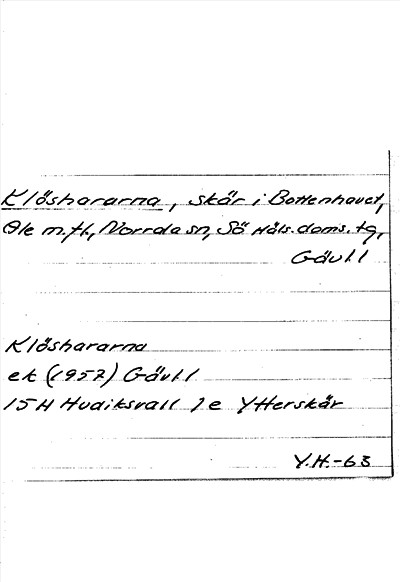 Klöshararna, skär i Bottenhavet,
Ole m.fl., Norrala sn, Sö Häls. doms. tg,
Gävl. l
Klöshararna
ek (1957) Gävl. l
15H Hudiksvall 1e Ytterskär
Y.H.-63